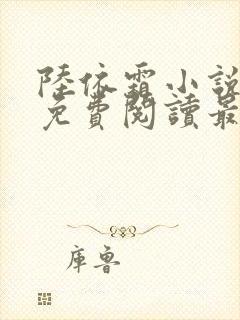 陸依霜小說
免費閱讀最
庫魯